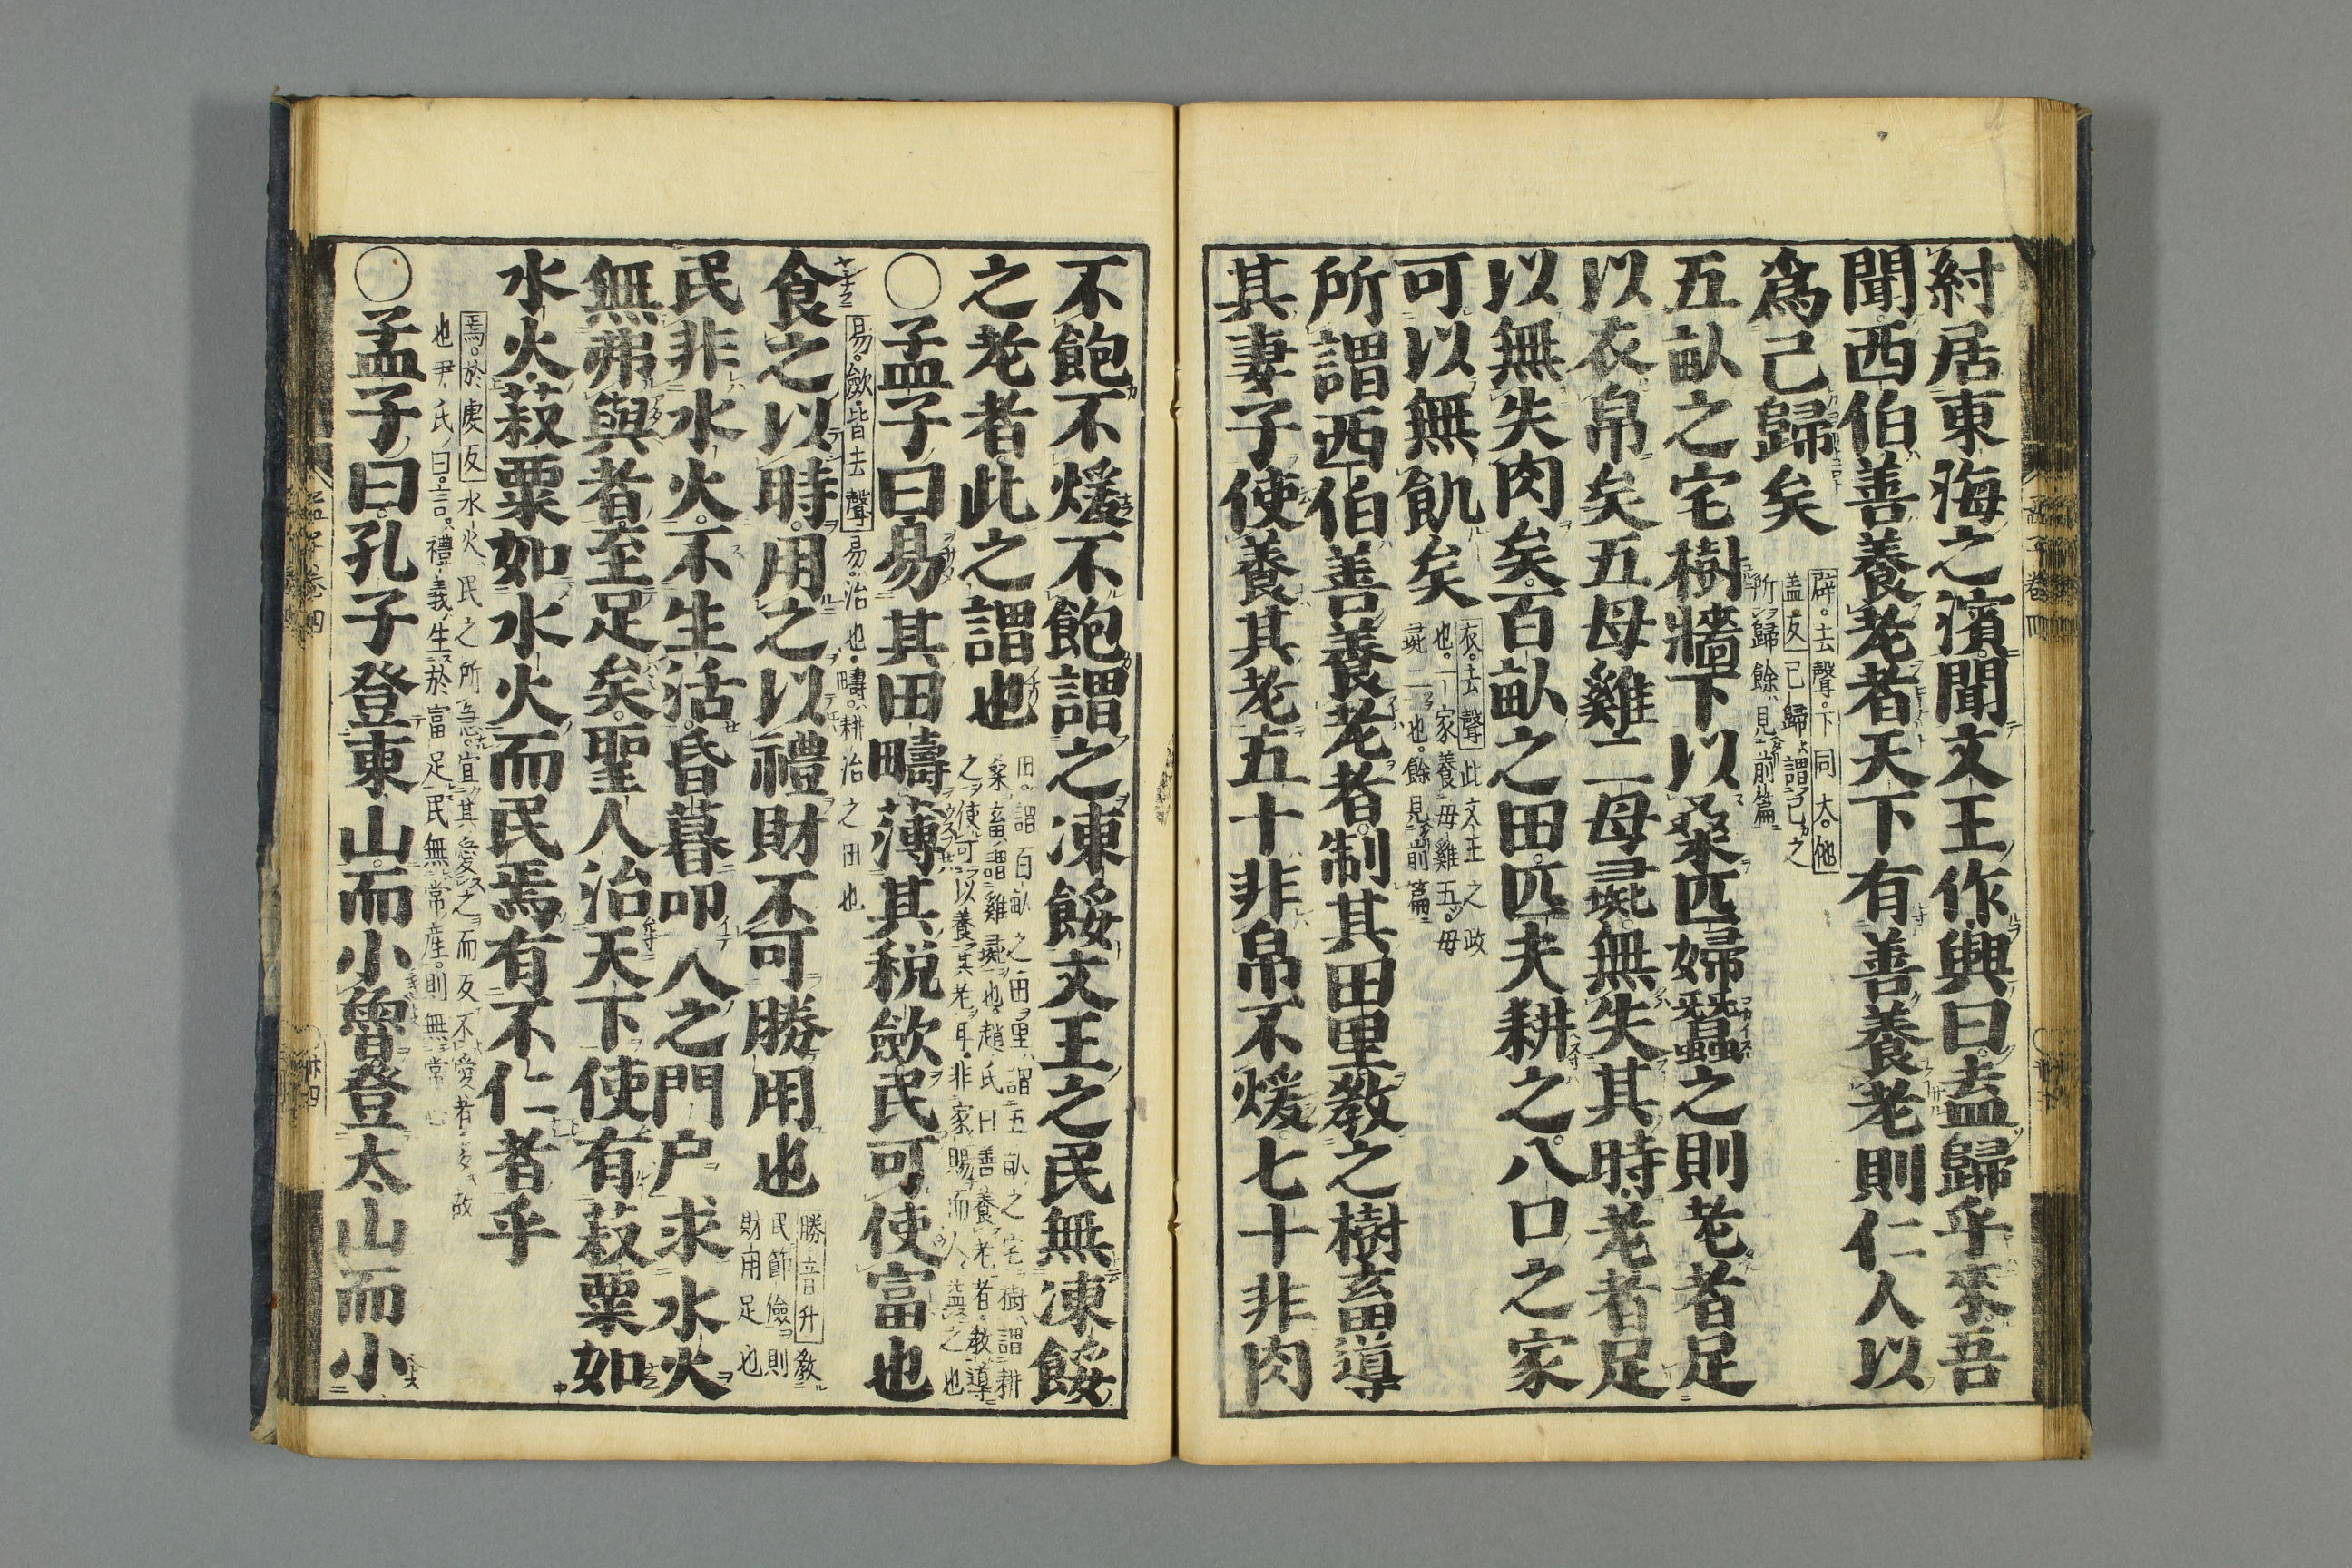 紂居東海之濱聞文王作興曰盍歸乎來吾
聞西伯善養老者天下有善養老則仁人以
爲己歸矣
辟去聲下同大他
蓋反己歸謂己之
所歸餘見前篇
五畝之宅樹牆下以桑匹婦蠶之則老者足
以衣帛矣五母雞二母彘無失其時老者足
以無失肉矣百畝之田匹夫耕之八口之家
可以無飢矣
衣去聲此文王之政
也一家養母雞五母
彘二也餘見前篇
所謂西伯善養老者制其田里敎之樹畜導
其妻子使養其老五十非帛不煖七十非肉
不飽不煖不飽謂之凍餒文王之民無凍餒
之老者此之謂也
田謂百畝之田里謂五畝之宅樹謂耕
桒畜謂雞彘也趙氏曰善養老者敎導
之使可以養其老耳非家賜而人益之也
○孟子曰易其田疇薄其稅斂民可使富也
易斂皆去聲易治也疇耕治之田也
食之以時用之以禮財不可勝用也
勝音升敎
民節儉則
財用足也
民非水火不生活昏暮叩人之門户求水火
無弗與者至足矣聖人治天下使有菽粟如
水火菽粟如水火而民焉有不仁者乎
焉於虔反水火民之所急宜其愛之而反不愛者多故
也尹氏曰言禮義生於富足民無常産則無常心
○孟子曰孔子登東山而小魯登太山而小